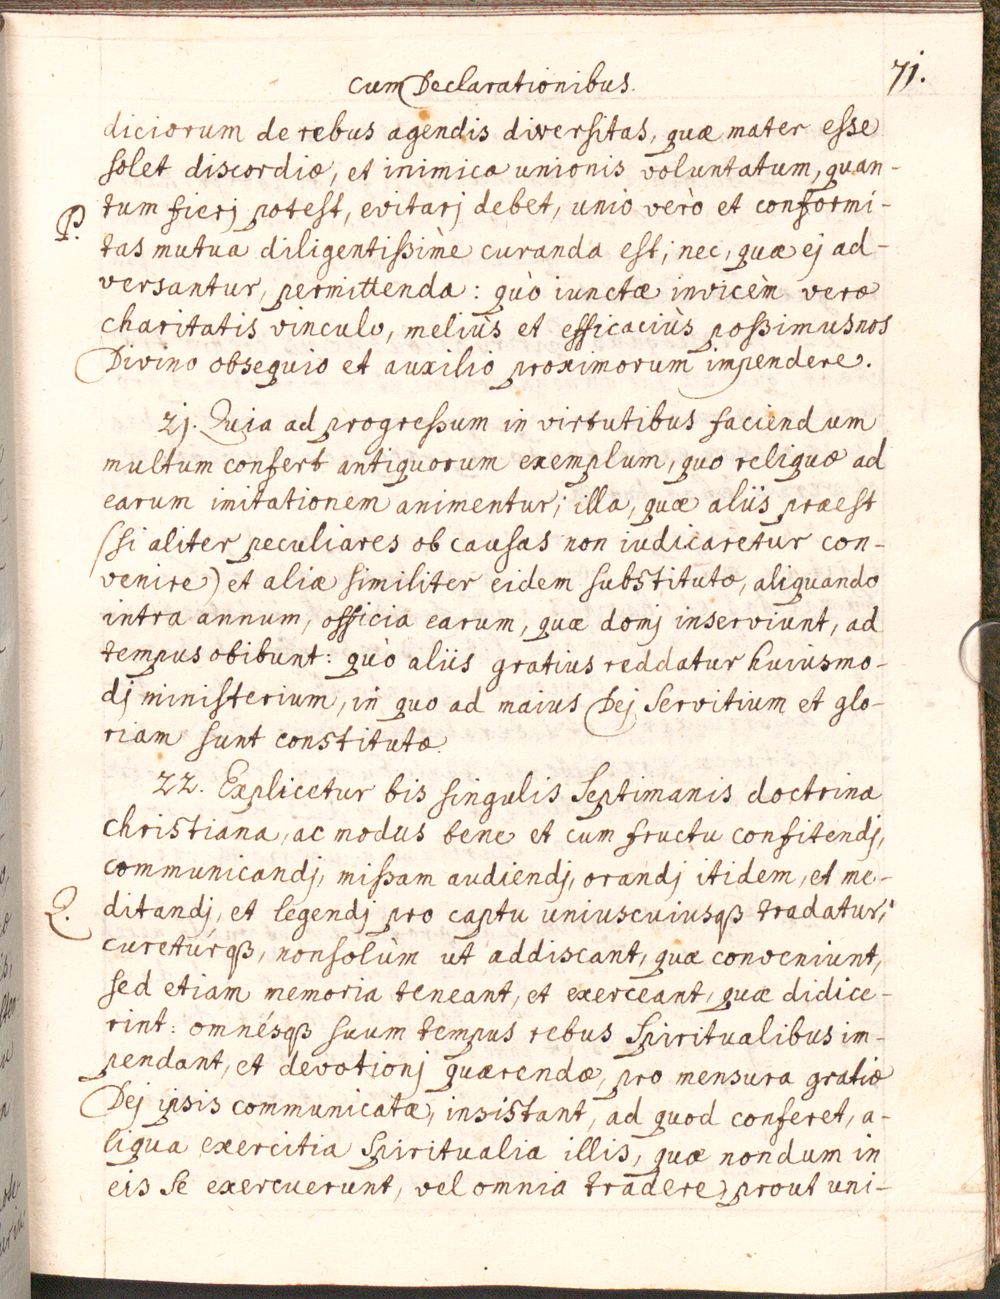 Cum Declarationibus. 71.
diciorum de rebus agendis diversitas, quæ mater esse
solet discordiæ, et inimica unionis voluntatum, quan-
P. tum fierj potest, evitarj debet, unio verò et conformi-
tas mutua diligentissimè curanda est; nec, quæ ej ad-
versantur, permittenda: quò iunctæ invicèm veræ
charitatis vinculo, meliùs et efficaciùs possimus nos
Divino obsequio et auxilio proximorum impendere.
21. Quia ad progressum in virtutibus faciendum
multum confert antiquorum exemplum, quo reliquæ ad
earum imitationem animentur; illa, quæ aliis præest
(si aliter peculiares ob causas non iudicaretur con-
venire) et aliæ similiter eidem substitutæ, aliquando
intra annum, officia earum, quæ domj inserviunt, ad
tempus obibunt: quò aliis gratius reddatur huiusmo-
dj ministerium, in quo ad maius Dej Servitium et glo-
riam sunt constitutæ.
22. Explicetur bis singulis Septimanis doctrina
christiana, ac modus bene et cum fructu confitendj,
communicandj, missam audiendj, orandj itidem, et me-
Q. ditandj, et legendj pro captu uniuscuiusqß tradatur;
cureturqß, non solùm ut addiscant, quæ conveniunt,
sed etiam memoria teneant, et exerceant, quæ didice-
rint: omnésqß suum tempus rebus Spiritualibus im-
pendant, et devotionj quærendæ, pro mensura gratiæ
Dej ipsis communicatæ, insistant, ad quod conferet, a-
liqua exercitia Spiritualia illis, quæ nondum in
eis se exercuerunt, vel omnia tradere, prout uni-